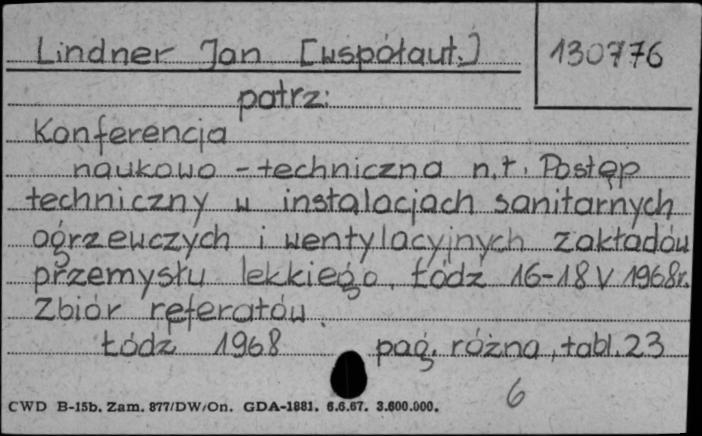 Lindner Jan [współaut.]
130776
patrz:
Konferencja
naukowo-techniczna n.t. Postęp
techniczny w instalacjach sanitarnych
ogrzewczych i wentylacyjnych zakładów
przemysłu lekkiego, Łódź 16-18 V 1968r.
Zbiór referatów.
Łódź 1968 pag. różna, tabl. 23
6
CWD B-15b. Zam. 877/DW/On. GDA-1881. 6.6.67. 3.600.000.